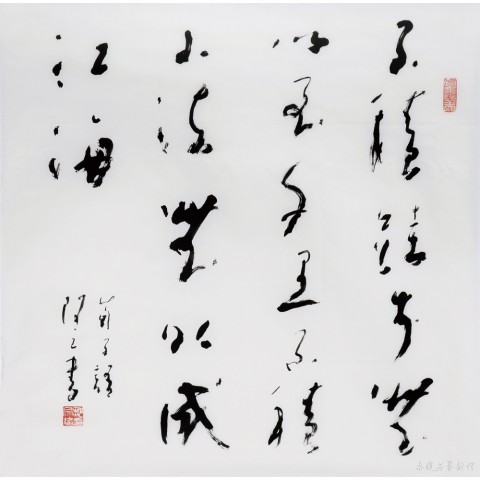 不積跬步無
以至千里不積
小流無以成
江海
荀子語
書